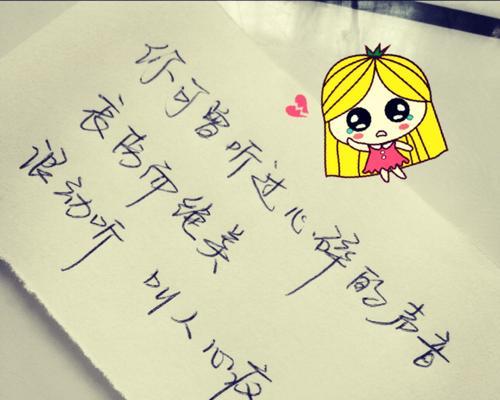 你可曾听过心碎的声音
哀伤而绝美
很动听 叫人心疼